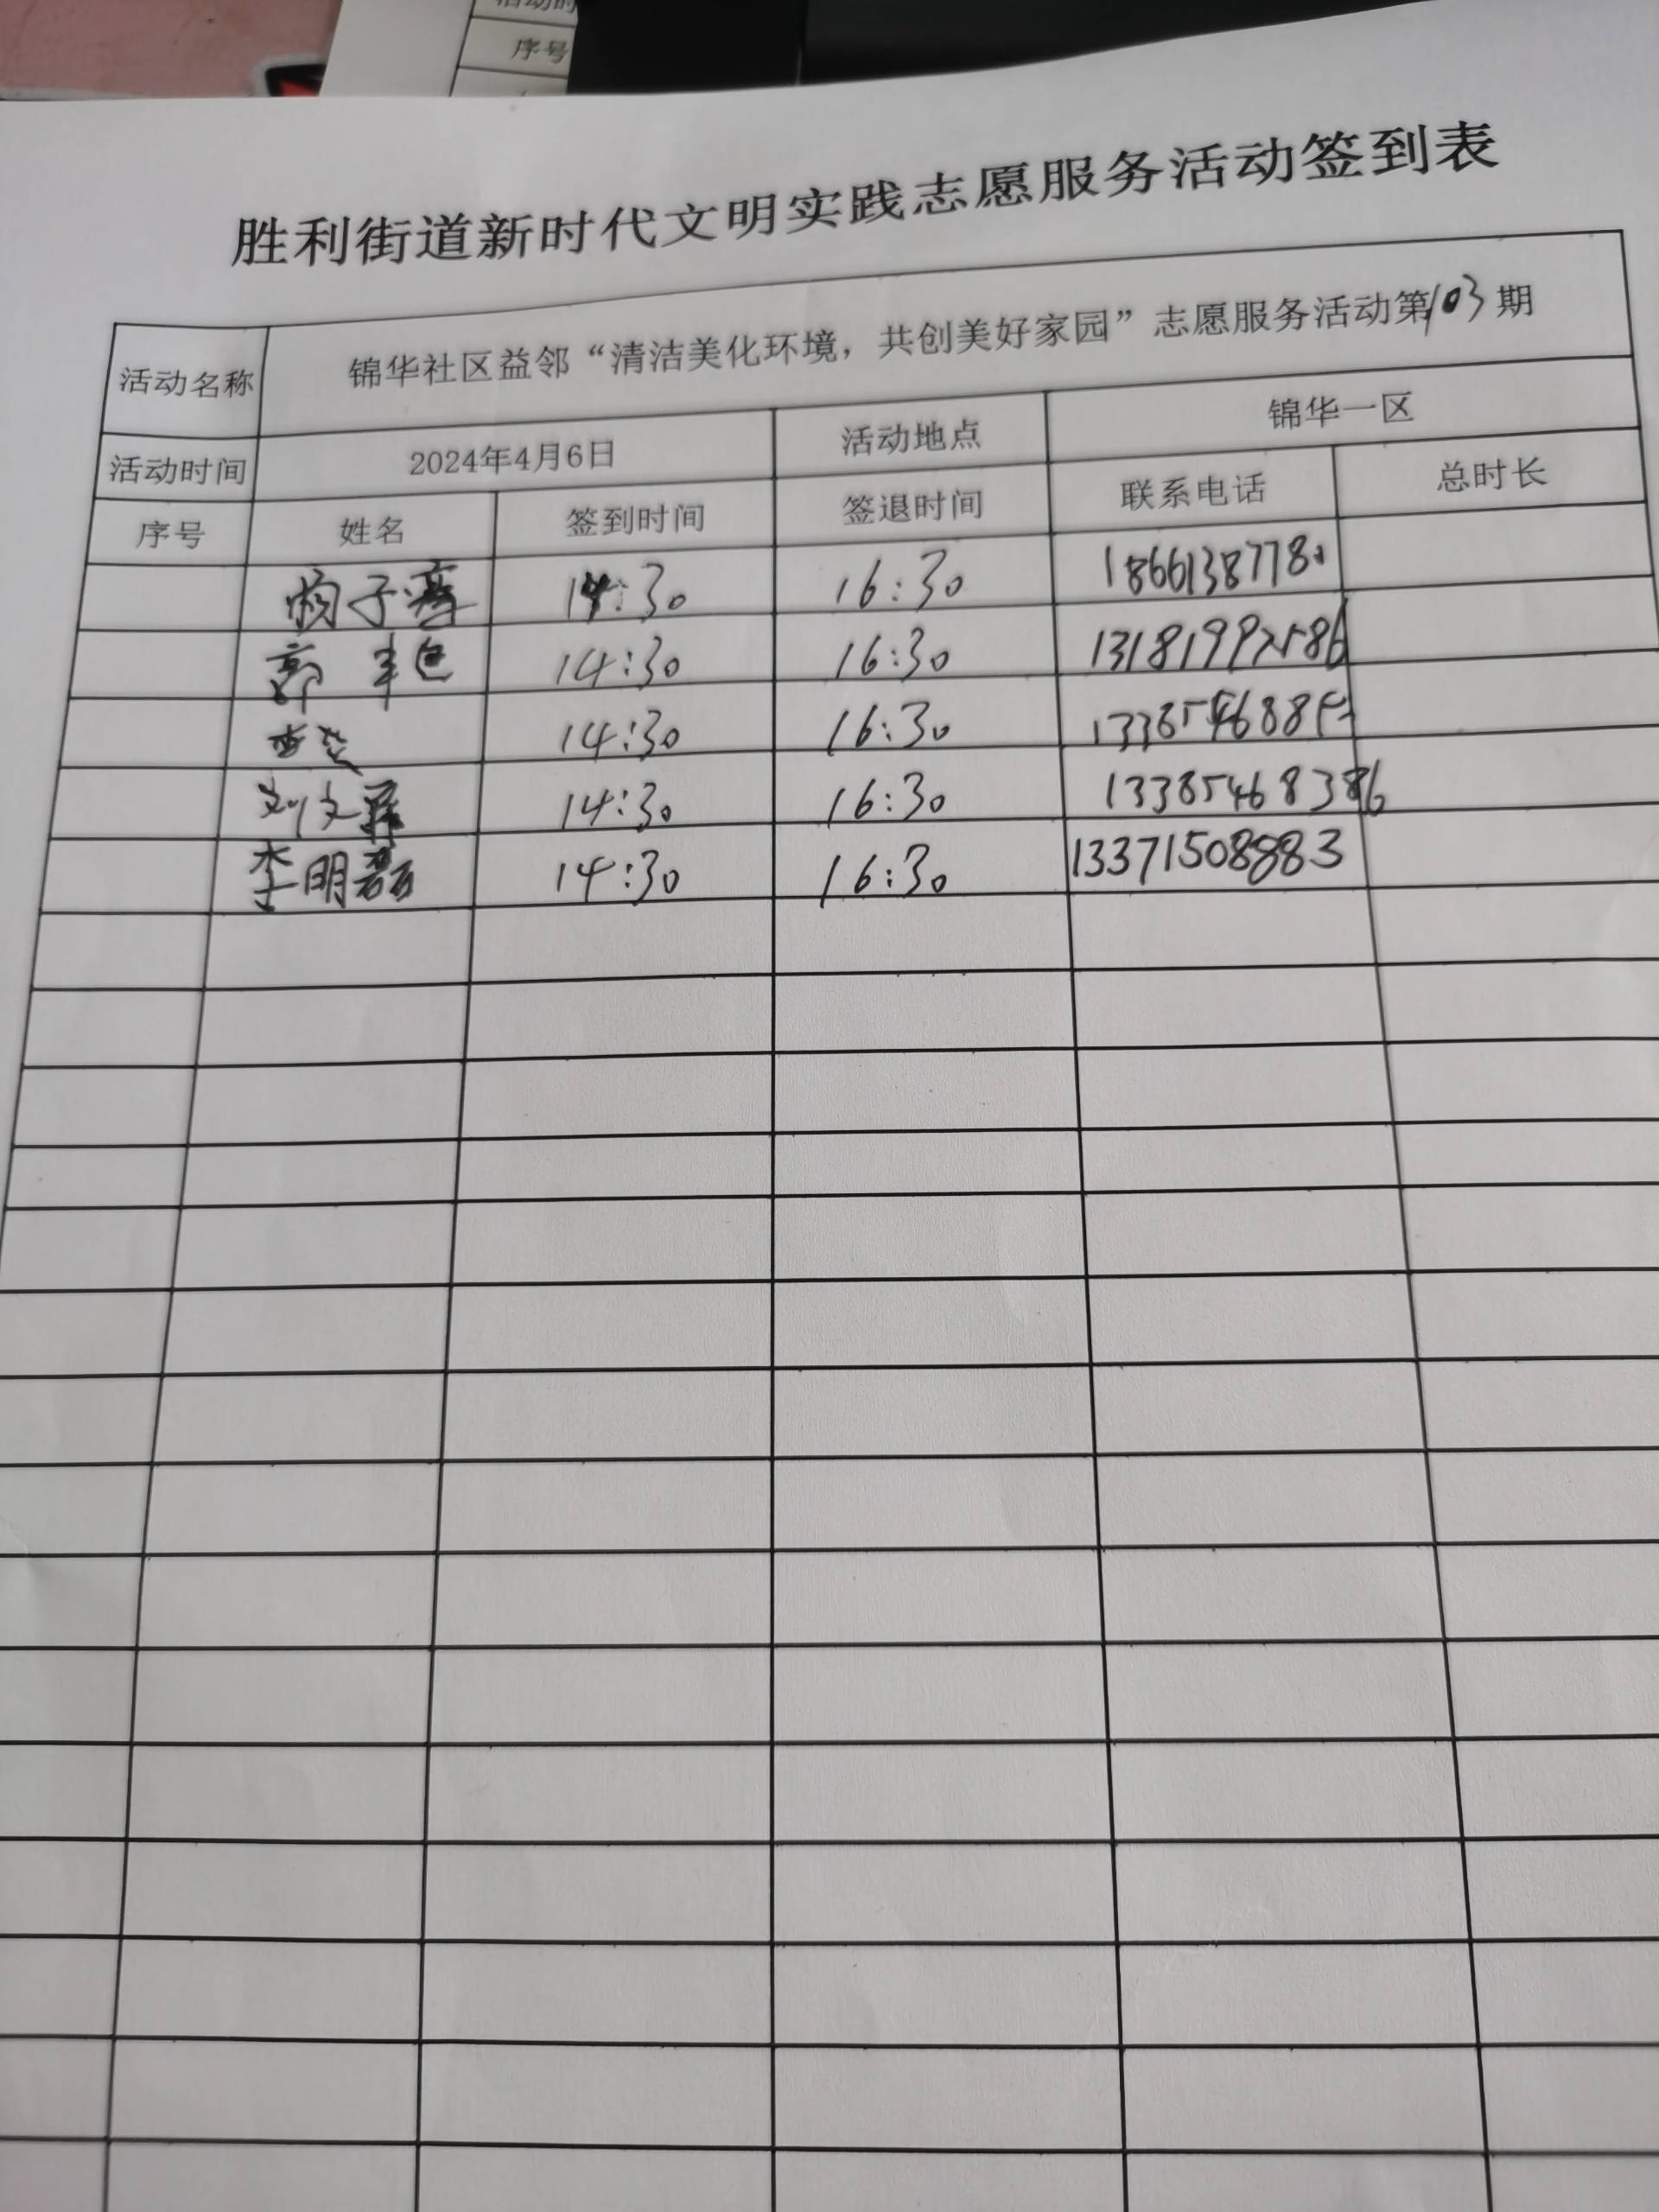 序号
胜利街道新时代文明实践志愿服务活动签到表
活动名称 锦华社区益邻“清洁美化环境，共创美好家园”志愿服务活动第103期
活动时间 2024年4月6日 活动地点 锦华一区
序号 姓名 签到时间 签退时间 联系电话 总时长
子 14:30 16:30 18661387780
郭 14:30 16:30 13181997586
14:30 16:30
刘文 14:30 16:30
李明磊 14:30 16:30 13371508883